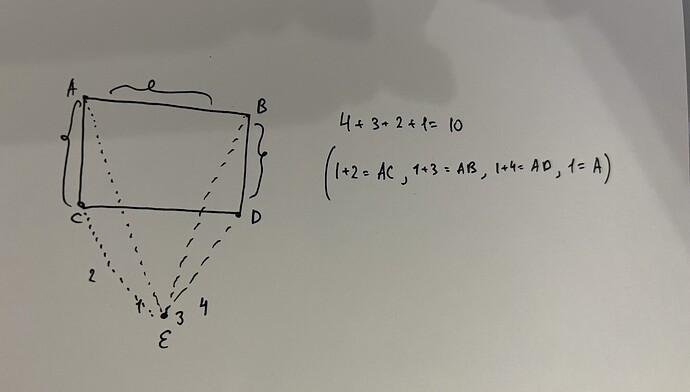 A
B
4 + 3 + 2 + 1 = 10
(1+2 = AC, 1+3 = AB, 1+4 = AD, 1 = A)
C
D
2
1
3
4
E